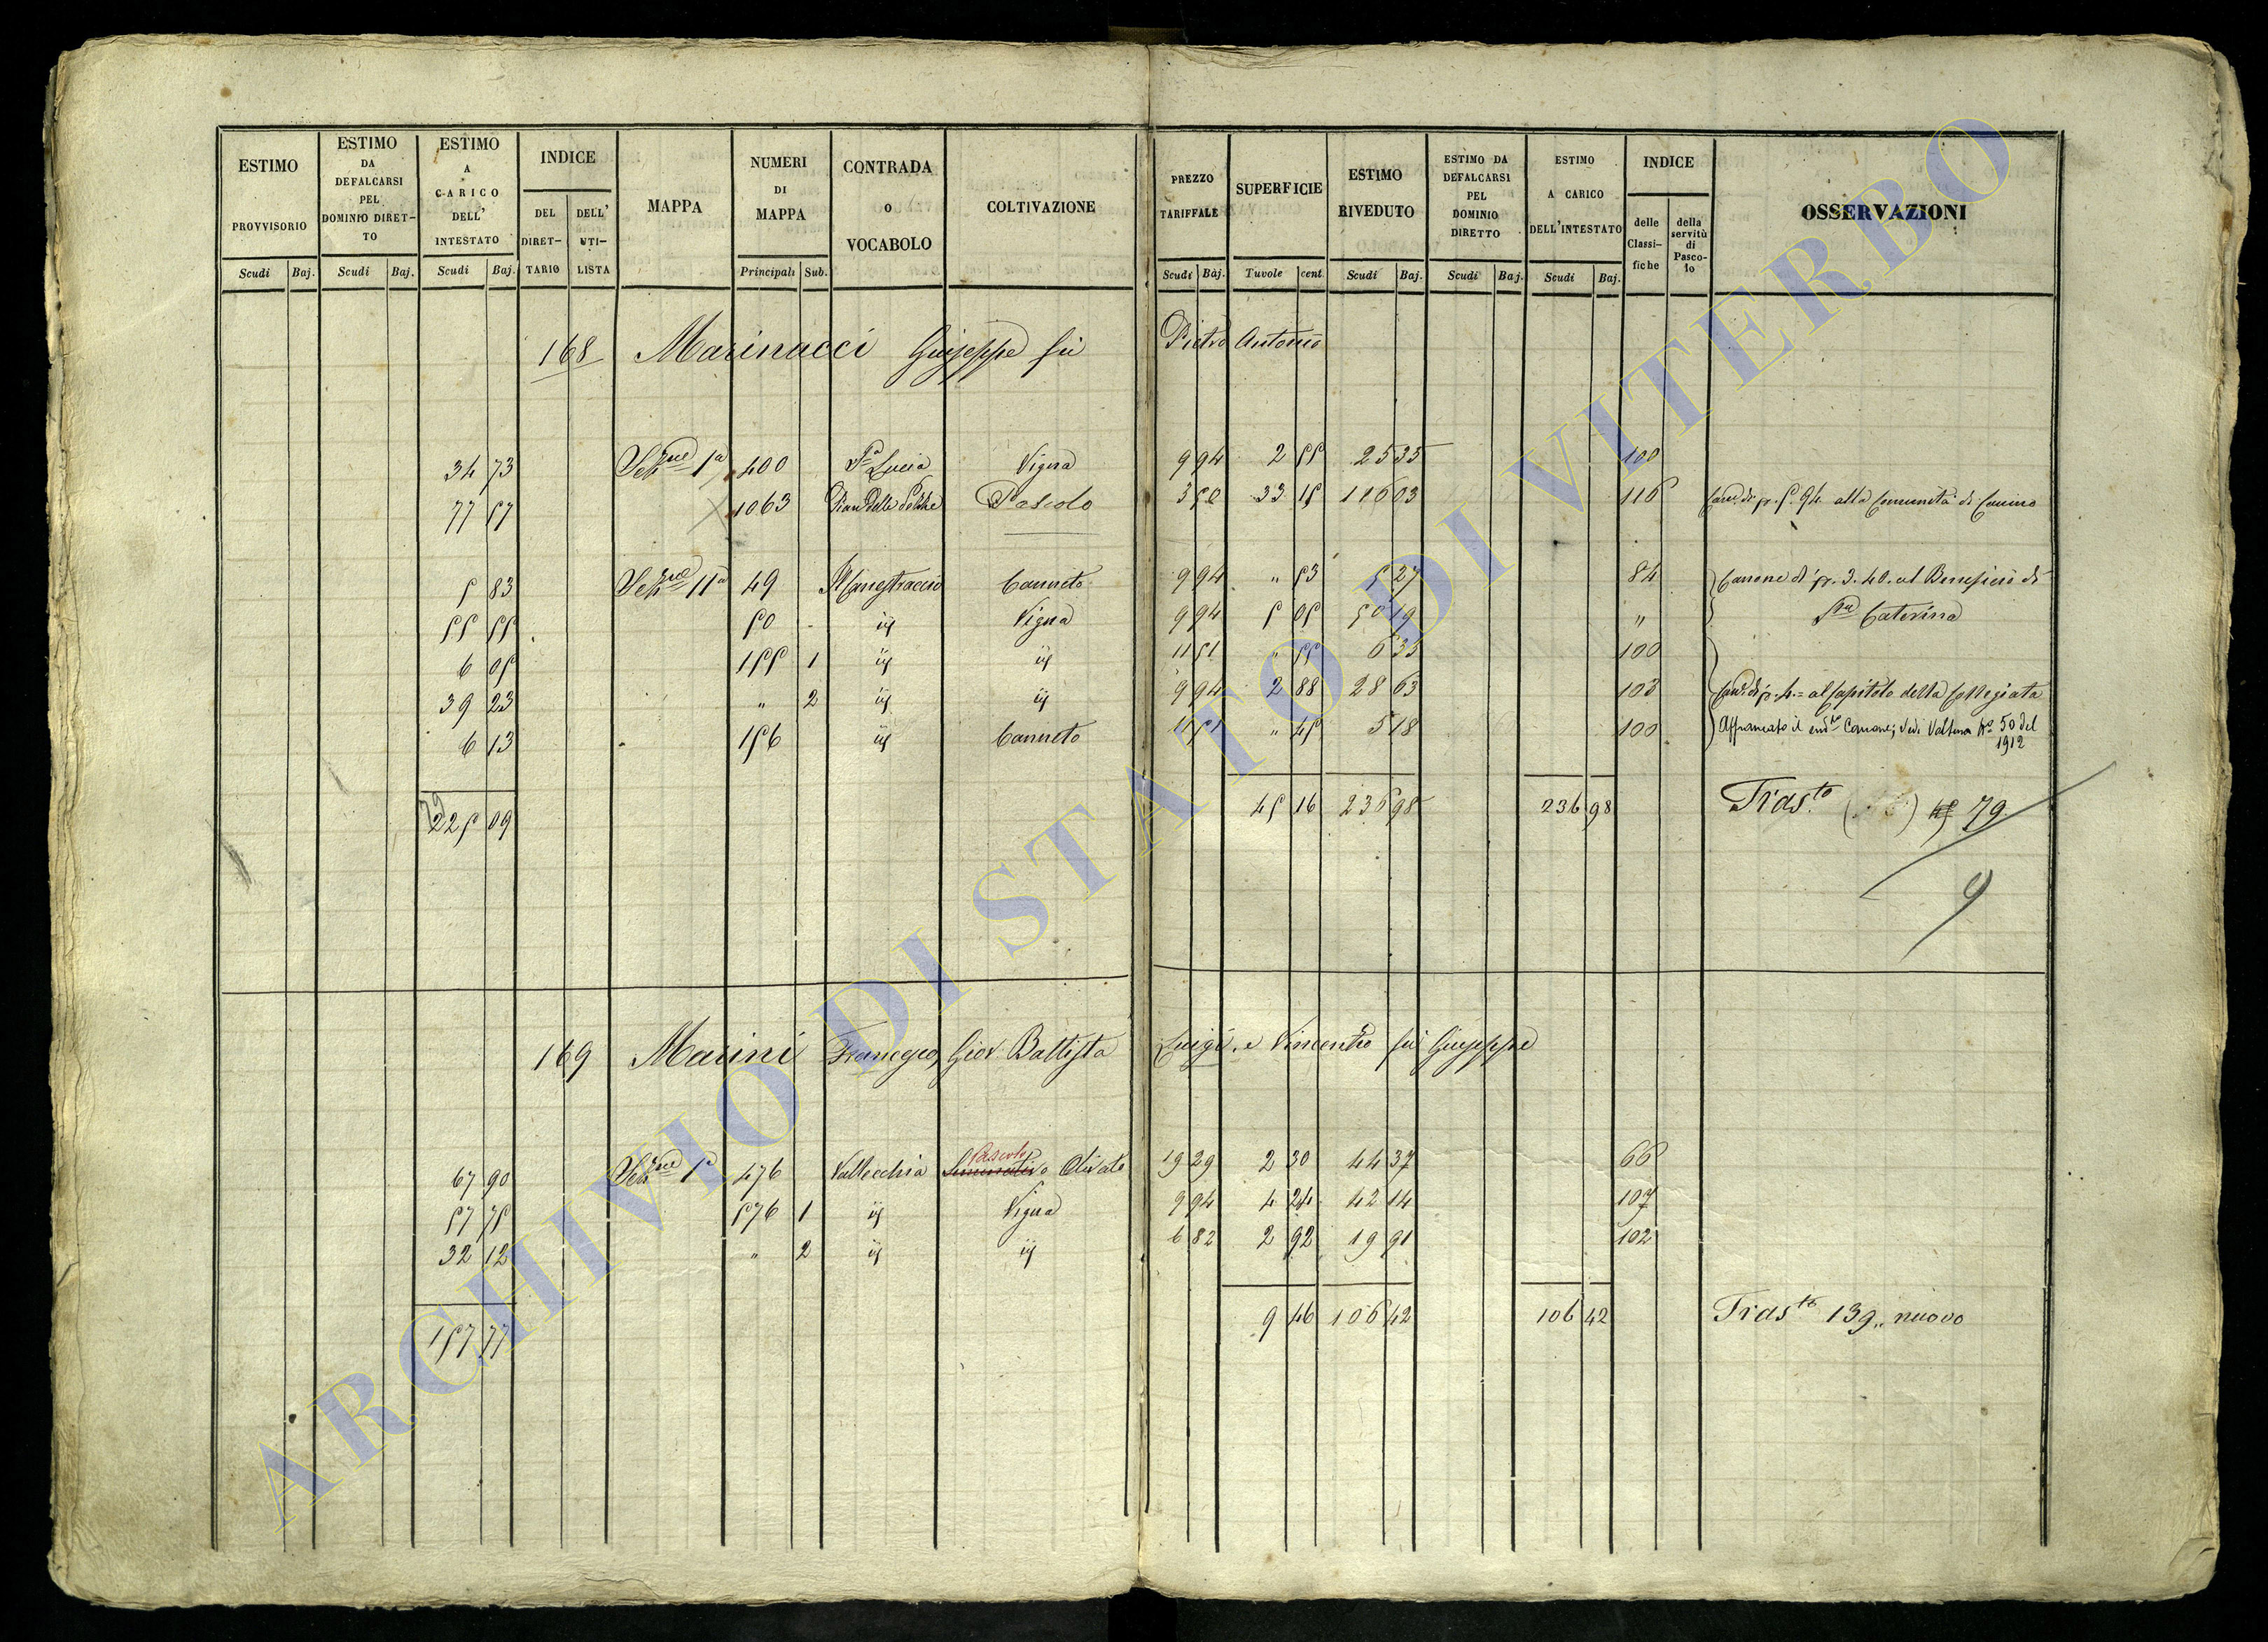 ESTIMO PROVVISORIO | ESTIMO DA DEFALCARSI PEL DOMINIO DIRETTO | ESTIMO A CARICO DELL' INTESTATO | INDICE | MAPPA | NUMERI DI MAPPA | CONTRADA O VOCABOLO | COLTIVAZIONE | PREZZO TARIFFALE | SUPERFICIE | ESTIMO RIVEDUTO | ESTIMO DA DEFALCARSI PEL DOMINIO DIRETTO | ESTIMO A CARICO DELL'INTESTATO | INDICE | OSSERVAZIONI
DEL DIRET-TARIO | DELL' UTI-LISTA | delle Classi-fiche | della servitù di Pasco-lo
Scudi | Baj. | Scudi | Baj. | Scudi | Baj. | Principali | Sub. | Scudi | Baj. | Tavole | cent. | Scudi | Baj. | Scudi | Baj. | Scudi | Baj.
168 Marinacci Giuseppe fù Pietro Antonio
34 73 Sezne 1a 400 Sa Lucia Vigna 9 94 2 55 25 35 100
77 57 1063 Pian delle Pasolo 3 50 33 15 116 03 116 Cane di p. 5. 94 alla Comunità di Canino
5 83 Sezne 11a 49 Il Canestraccio Canneto 9 94 " 53 5 27 84 Canone di p. 3. 40. al Beneficio di
55 55 50 iij Vigna 9 94 5 05 50 19 " Sta Caterina
6 05 155 1 iij iij 11 51 " 55 6 33 100
39 23 " 2 iij iij 9 94 2 88 28 63 103 Cane di p. 4. = al Capitolo della Collegiata
6 13 156 iij Canneto 11 51 " 45 5 18 100 Affrancato il Canone; Vedi Voltura No 50 del
1912
225 09 45 16 236 98 236 98 Trasto 79.
9
169 Marini Francesco, Giov. Battista Luigi, e Vincenzo fù Giuseppe
Pascolo
67 90 Sezne 1a 476 Vallecchia Seminativo Olivato 19 29 2 30 44 37 66
57 75 576 1 iij Vigna 9 94 4 24 42 14 107
32 12 " 2 iij iij 6 82 2 92 19 91 102
157 77 9 46 106 42 106 42 Trasto 139,, nuovo
ARCHIVIO DI STATO DI VITERBO